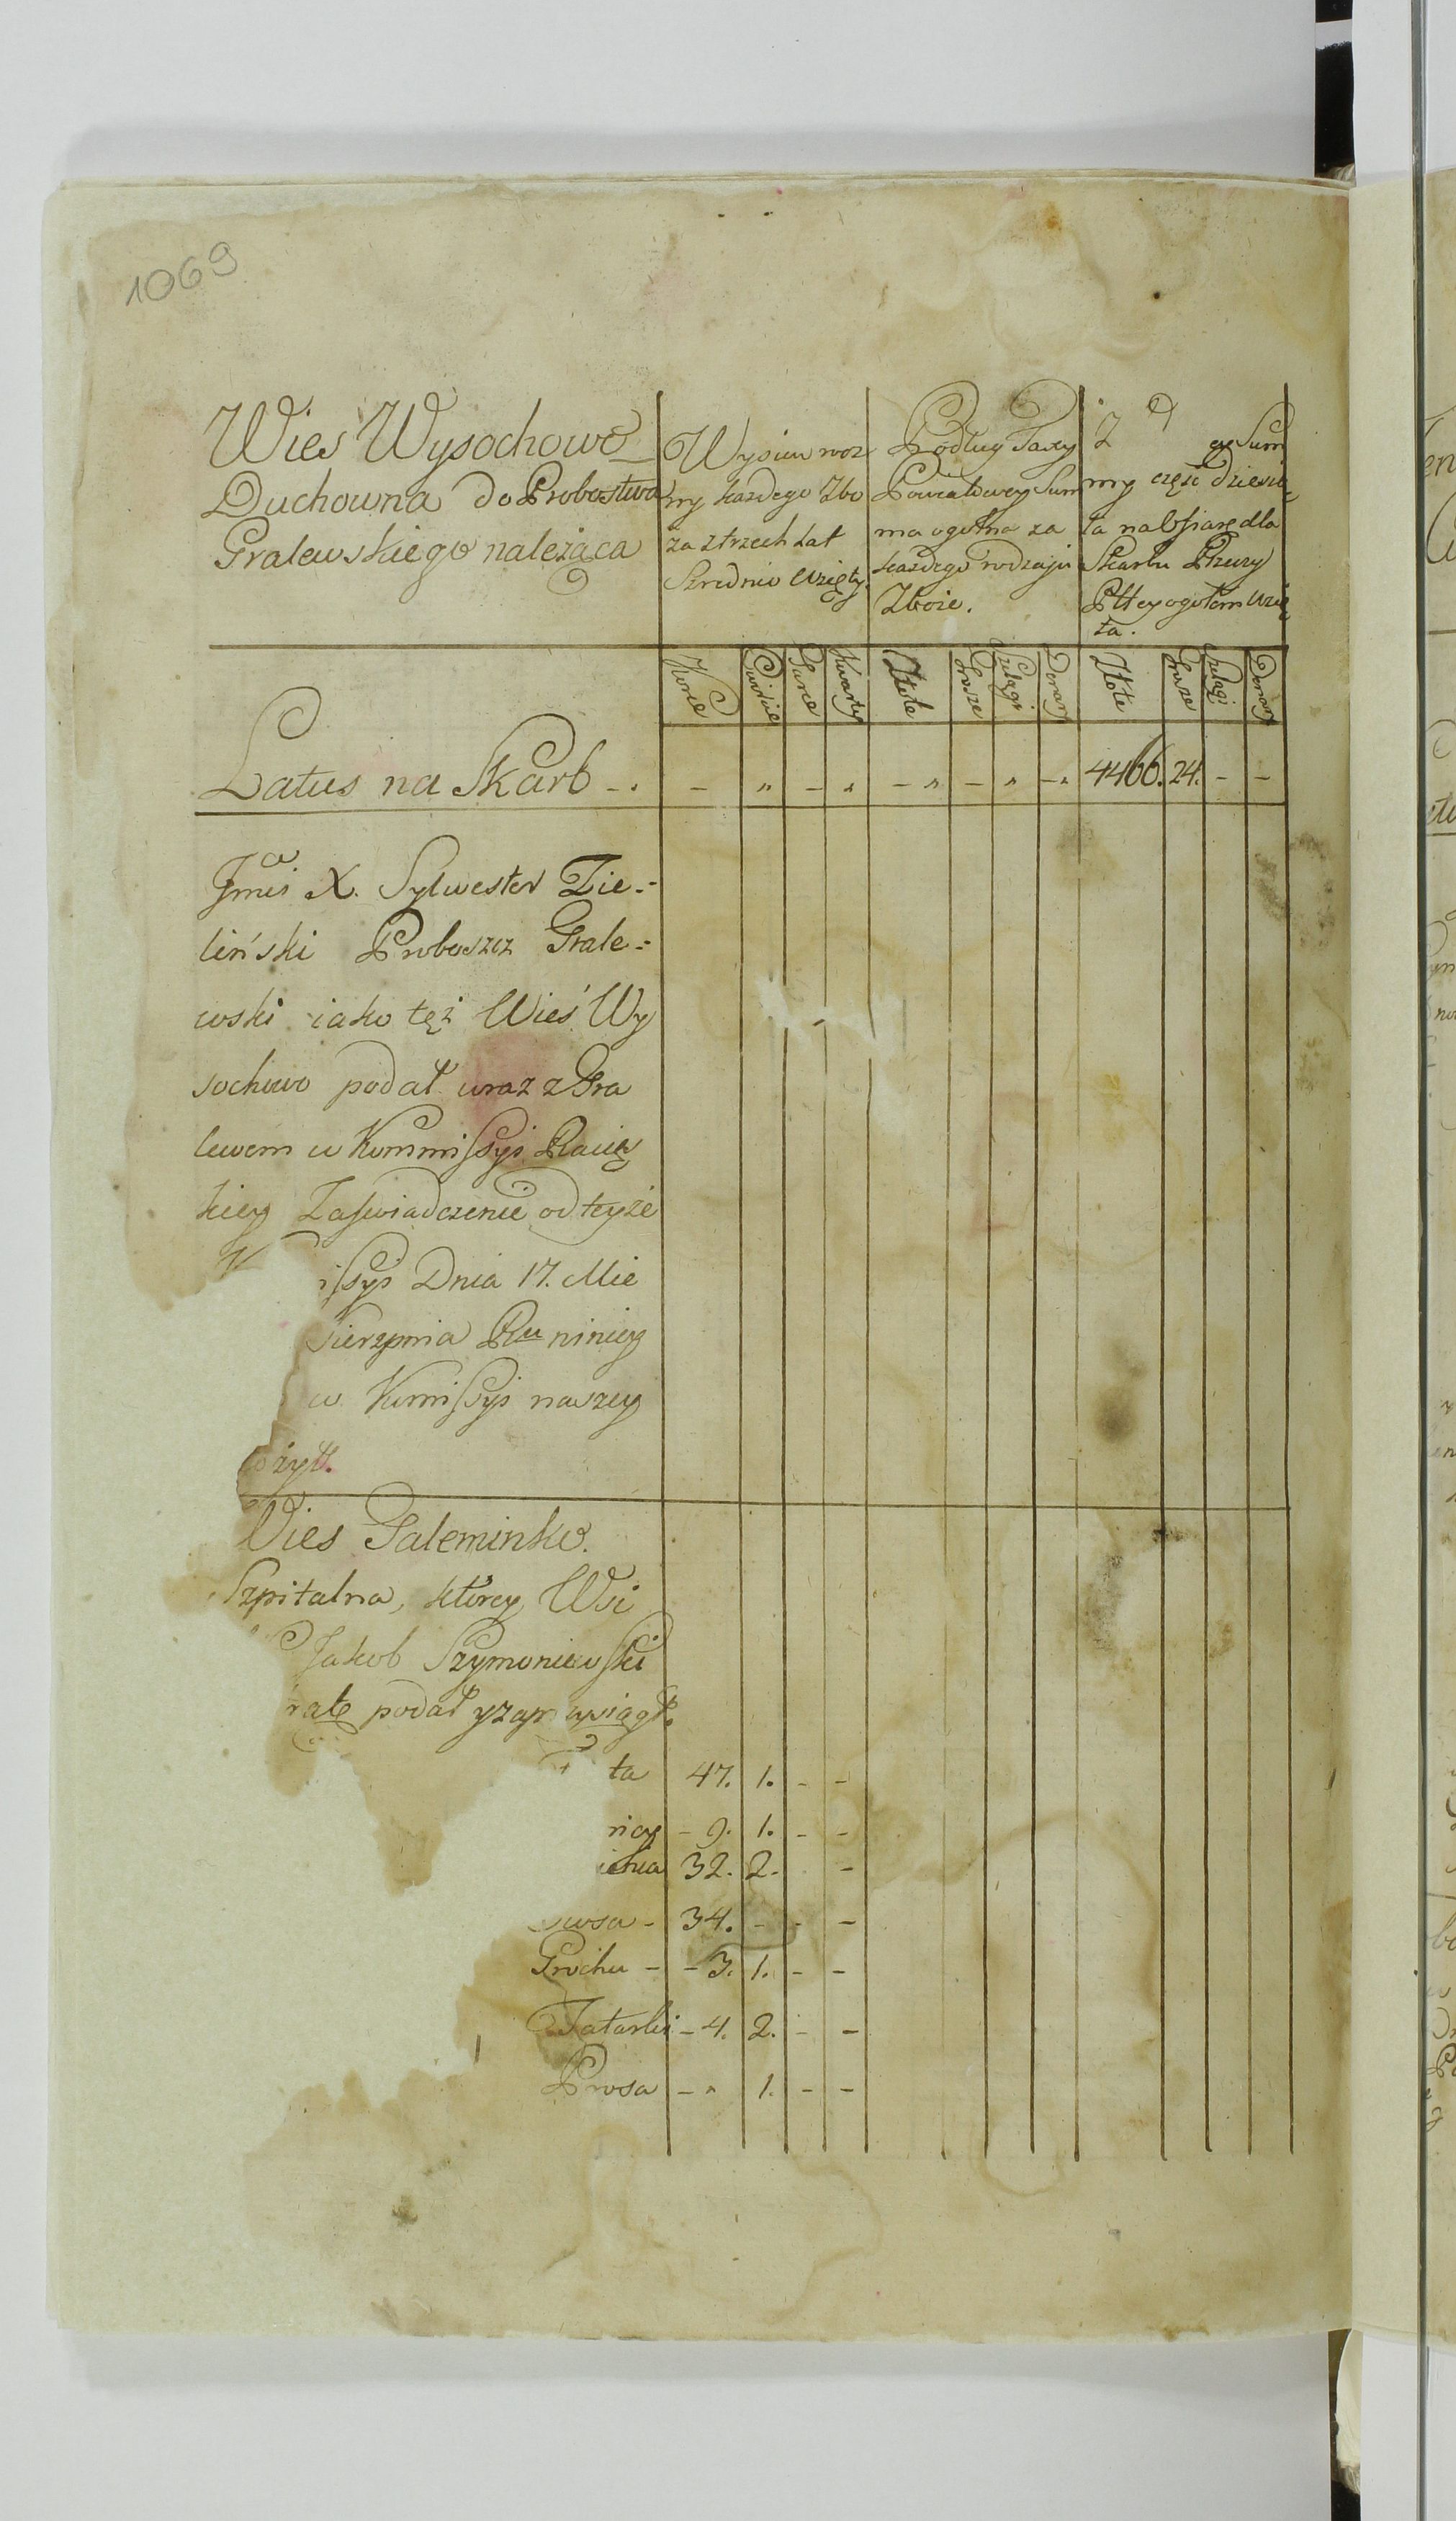 1069
Wies Wysochowo
Duchowna do Probostwa
Gralewskiego należąca
Wysiew rocz
ny każdego Zbo
ża z trzech Lat
Szrednio wzięty.
Podług Taxy
Powiatowey Sum
ma ogolna za
każdego rodzaju
Zboże.
Z ey Sum
my część dziesią
ta na Ofiarę dla
Skarbu Rzeczy
Pltey ogołem wzię
ta.
Korce
Cwierci
Garce
Kwarty
Złote
Grosze
Szelągi
Denary
Złote
Grosze
Szelągi
Denary
Latus na Skarb - . - " - " - " - " - " 4466. 24. - -
Jmći X. Sylwester Zie-
liński Proboszcz Grale-
wski iako też Wieś Wy
sochowo podał wraz z Gra
lewem w Kommissyi Raciąs
kiey Zaświadczenie od teyże
K issyi Dnia 17. Mie
Sierzpnia Ru niniey
w Komissyi naszey
ożył.
Wies Galeminko.
Szpitalna, ktorey Wsi
Jakob Szymoniewski
rate podał y zaprzysiągł.
ta 47. 1. - -
nicy - 9. 1. - -
ienia 32. 2. -
wsa - 34. - - -
Grochu - - 3. 1. - -
Tatarki - 4. 2. - -
Prosa - " 1. - -